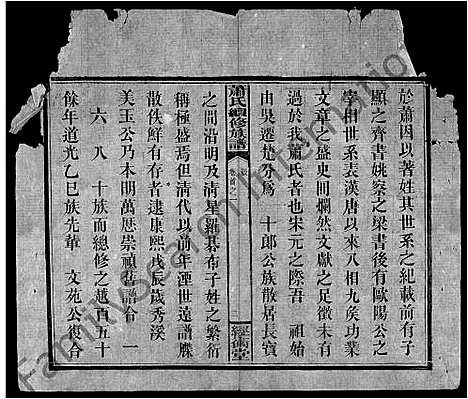 於蕭因以著姓其世系之紀載前有子
顯之齊書姚察之梁書後有歐陽公之
宰相世系表漢唐以來八相九侯功業
文章之盛史冊爛然文獻之足徵未有
過於我蕭氏者也宋元之際吾 祖始
由吳遷楚分為 十郎公族散居長寶
蕭氏續修族譜
卷首之
經倫堂
之間沿明及清星羅棊布子姓之繁衍
稱極盛焉但清代以前年湮世遠譜牒
散佚鮮有存者逮康熙戊辰歲秀溪
美玉公乃本明萬厯崇禎舊譜合 一
六 八 十族而總修之越百五十
餘年道光乙巳族先輩 文苑公復合
FamilySearch International